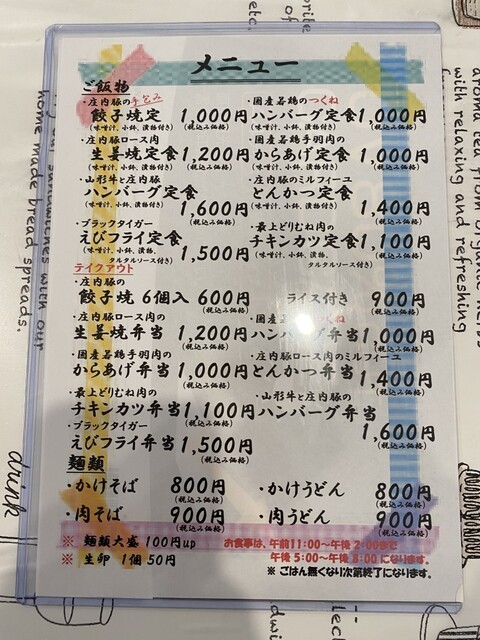 メニュー
ご飯物
・庄内豚の手包み
餃子焼定 1,000円
(味噌汁、小鉢、漬物付き) (税込み価格)
・国産若鶏のつくね
ハンバーグ定食 1,000円
(味噌汁、小鉢、漬物付き) (税込み価格)
・庄内豚ロース肉
生姜焼定食 1,200円
(味噌汁、小鉢、漬物付き) (税込み価格)
・国産若鶏手羽肉の
からあげ定食 1,000円
(味噌汁、小鉢、漬物付き) (税込み価格)
・山形牛と庄内豚
ハンバーグ定食
(味噌汁、小鉢、漬物付き) 1,600円
(税込み価格)
・庄内豚のミルフィーユ
とんかつ定食 1,400円
(味噌汁、小鉢、漬物付き) (税込み価格)
・ブラックタイガー
えびフライ定食 1,500円
(味噌汁、小鉢、漬物、
タルタルソース付き) (税込み価格)
・最上どりむね肉の
チキンカツ定食 1,100円
(味噌汁、小鉢、漬物、
タルタルソース付き) (税込み価格)
テイクアウト
・庄内豚の
餃子焼 6個入 600円
(税込み価格)
ライス付き 900円
(税込み価格)
・庄内豚ロース肉の
生姜焼弁当 1,200円
(税込み価格)
・国産若鶏つくね
ハンバーグ弁当 1,000円
(税込み価格)
・国産若鶏手羽肉の
からあげ弁当 1,000円
(税込み価格)
・庄内豚ロース肉のミルフィーユ
とんかつ弁当 1,400円
(税込み価格)
・最上どりむね肉の
チキンカツ弁当 1,100円
(税込み価格)
・山形牛と庄内豚の
ハンバーグ弁当
1,600円
(税込み価格)
・ブラックタイガー
えびフライ弁当 1,500円
(税込み価格)
麺類
・かけそば 800円
(税込み価格)
・かけうどん 800円
(税込み価格)
・肉そば 900円
(税込み価格)
・肉うどん 900円
(税込み価格)
※ 麺類大盛 100円up
※ 生卵 1個 50円
お食事は、午前11:00~午後 2:00まで
午後 5:00~午後 8:00 になります。
※ ごはん無くなり次第終了になります。
with relaxing
and refreshing
sandwiches with our
home made bread spreads.
drink